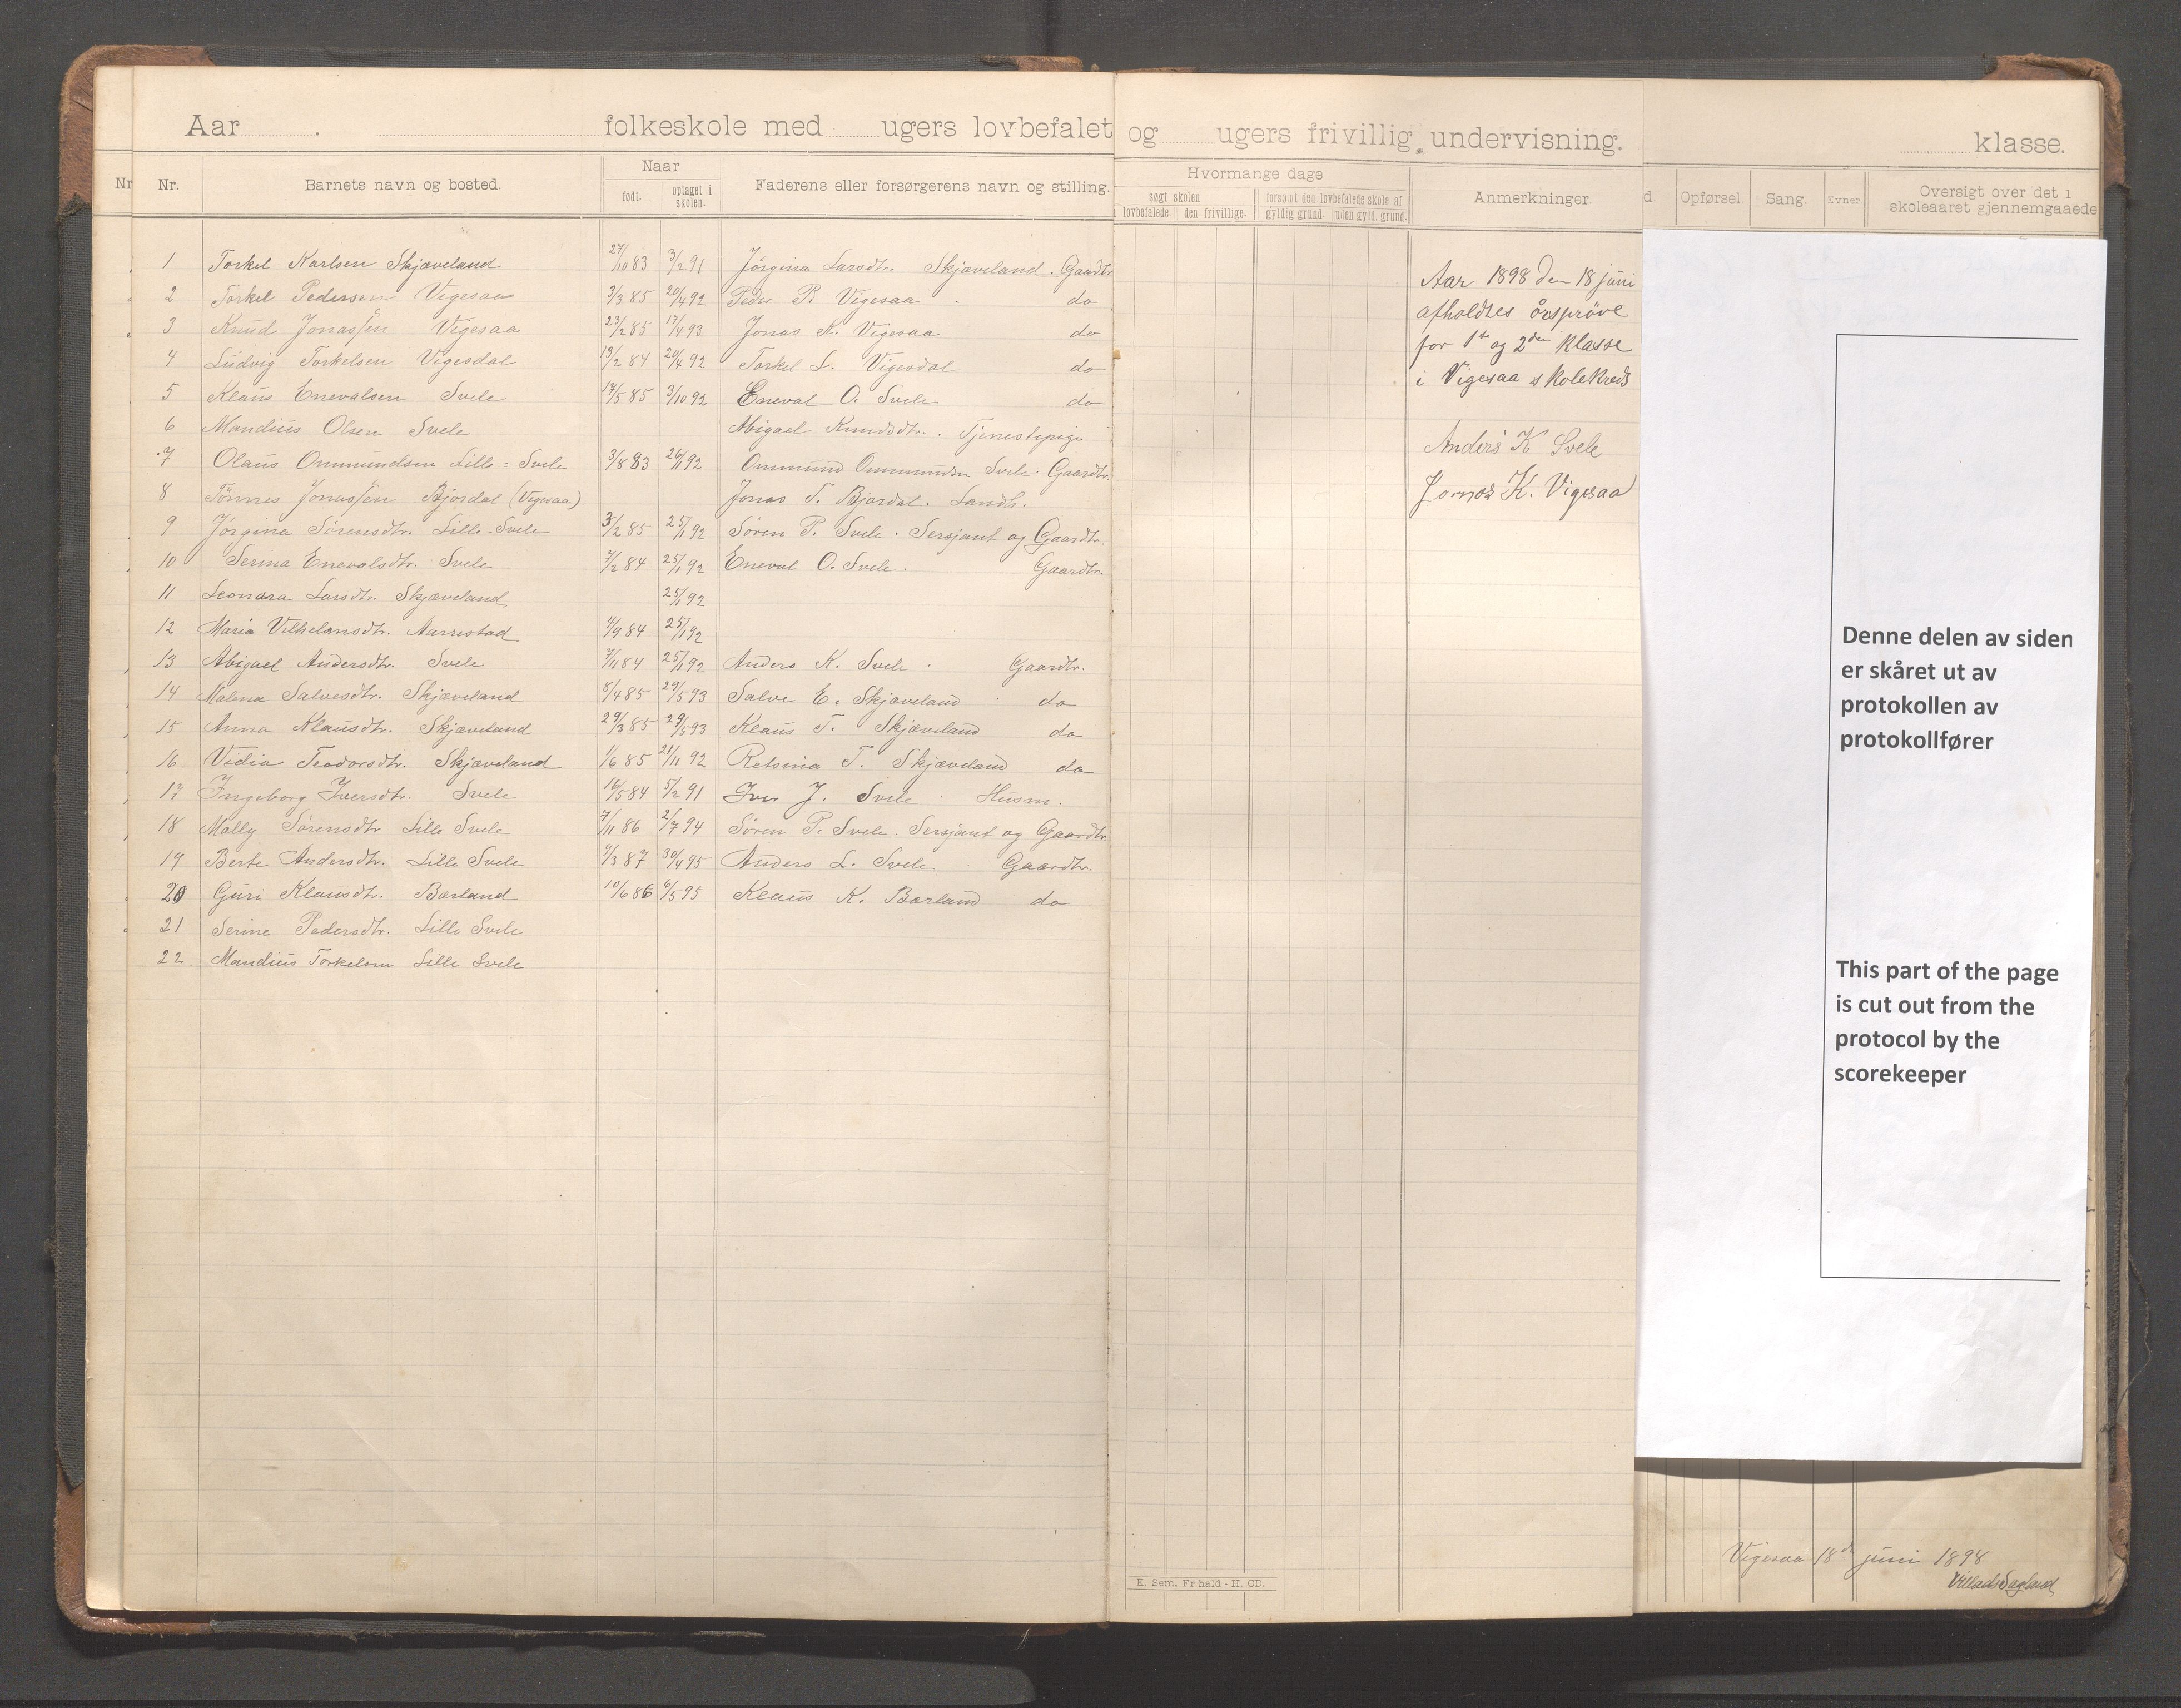 Aar . folkeskole med ugers lovbefalet og ugers frivillig undervisning. klasse.
Nr Nr. Barnets navn og bosted. Naar født. optaget i skolen. Faderens eller forsørgerens navn og stilling. Hvormange dage søgt skolen lovbefalede den frivillige. forsømt den lovbefalede skole af gyldig grund. uden gyld. grund. Anmerkninger d Opførsel Sang. Evner Oversigt over det i skoleaaret gjennemgaaede
1 Torkel Karlsen Skjæveland 27/10 83 3/2 91 Jørgina Larsdtr. Skjæveland. Gaardtr
2 Torkel Pedersen Vigesaa 3/3 85 20/4 92 Peder P. Vigesaa . do
3 Knud Jonassen Vigesaa 23/2 85 17/4 93 Jonas K. Vigesaa do
4 Ludvig Torkelsen Vigesdal 13/2 84 20/4 92 Torkel L. Vigesdal do
5 Klaus Enevalsen Svele 17/5 85 3/10 92 Eneval O. Svele do
6 Mandius Olsen Svele Abigael Knudsdtr. Tjenestepige
7 Olaus Ommundsen Lille=Svele 3/8 83 26/1 92 Ommund Ommundsen Svele. Gaardtr.
8 Tönnes Jonassen Bjordal (Vigesaa) Jonas T. Bjordal. Landh.
9 Jørgina Sørensdtr. Lille-Svele 3/2 85 25/1 92 Søren P. Svele. Sersjant og Gaardtr.
10 Serina Enevalsdtr. Svele 7/2 84 25/1 92 Eneval O. Svele. Gaardtr.
11 Leonara Larsdtr. Skjæveland 25/1 92
12 Maria Vilhelmsdtr. Aarrestad 4/9 84 25/1 92
13 Abigael Andersdtr. Svele 7/11 84 25/1 92 Anders K. Svele . Gaardtr.
14 Malena Salvesdtr. Skjæveland 8/4 85 29/5 93 Salve E. Skjæveland do
15 Anna Klausdtr. Skjæveland 29/3 85 29/5 93 Klaus T. Skjæveland do
16 Vidia Teodorsdtr. Skjæveland 1/6 85 21/11 92 Retsina T. Skjæveland do
17 Ingeborg Iversdtr. Svele 16/5 84 5/2 91 Iver J. Svele . Husm.
18 Mally Sørensdtr Lille Svele 7/11 86 2/7 94 Søren P. Svele. Sersjant og Gaardtr.
19 Berte Andersdtr. Lille Svele 9/3 87 30/4 95 Anders L. Svele . Gaardtr.
20 Guri Klausdtr. Bærland 10/6 86 6/5 95 Klaus K. Bærland do
21 Serine Pedersdtr. Lille Svele
22 Mandius Torkelsen Lille Svele
Aar 1898 den 18 juni
afholdtes årsprøve
for 1ste og 2den klasse
i Vigesaa skolekreds
Anders K Svele
Jonas K. Vigesaa
Denne delen av siden
er skåret ut av
protokollen av
protokollfører
This part of the page
is cut out from the
protocol by the
scorekeeper
E. Sem. Fr.hald - H. CD.
Vigesaa 18de juni 1898
Villads Sagland